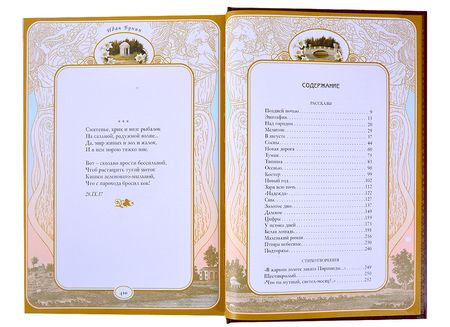 Иван Бунин
***
Смятенье, крик и визг рыбалок
На сальной, радужной волне...
Да, мир живых и зол и жалок,
И в нем порою тяжко мне.
Вот – сколько ярости бессильной,
Чтоб растащить тугой моток
Кишки зеленовато-мыльной,
Что с парохода бросил кок!
28.IX.17
410
СОДЕРЖАНИЕ
РАССКАЗЫ
Поздней ночью 9
Эпитафия 13
Над городом 20
Мелитон 25
В августе 37
Сосны 44
Новая дорога 60
Туман 71
Тишина 83
Осенью 90
Костер 99
Новый год 102
Заря всю ночь 112
«Надежда» 122
Сны 127
Золотое дно 137
Далекое 149
Цифры 159
У истока дней 173
Белая лошадь 185
Маленький роман 216
Птицы небесные 236
Подторжье 246
СТИХОТВОРЕНИЯ
«В жарком золоте заката Пирамиды...» 249
Шестикрылый 251
«Что ты мутный, светел-месяц?..» 252